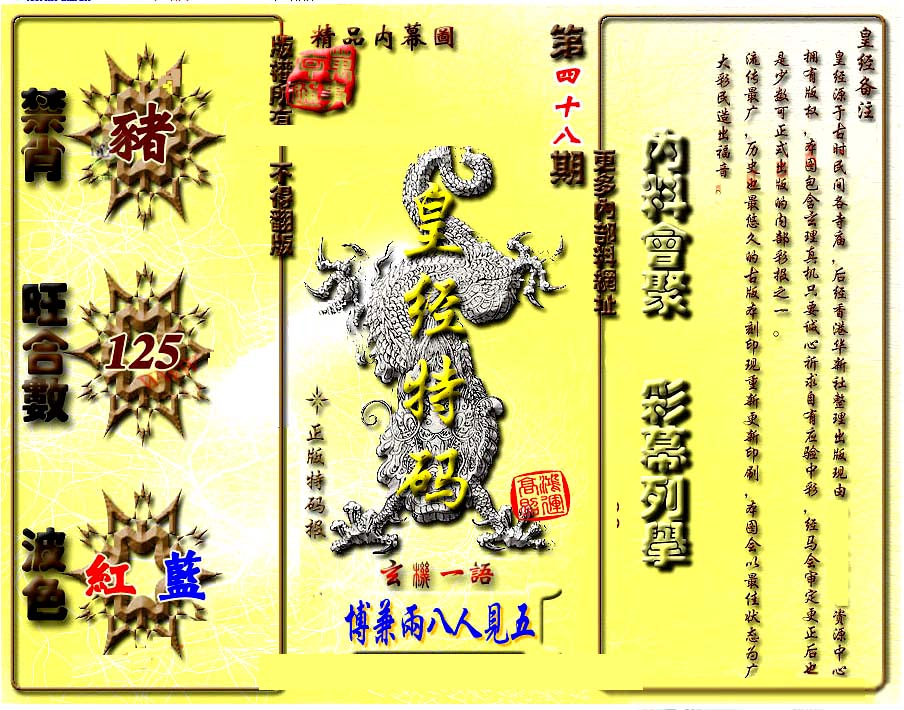 皇经备注
皇经源于古时民间各寺庙，后经香港华新社整理出版现由 资源中心
拥有版权，本图包含玄理真机只要诚心祈求自有应验中彩，经马会审定更正后也
是少数可正式出版的内部彩报之一。
流传最广，历史也最悠久的古版本刻印现重新更新印刷，本图会以最佳状态为广
大彩民造出福音。
內料會聚
彩幕列舉
更多內部料網址
第四十八期
精品内幕圖
皇经特码
正版特码报
鴻運高照
玄機一語
博兼兩八人見五
版權所有
不得翻版
禁肖
豬
旺合數
125
波色
紅 藍